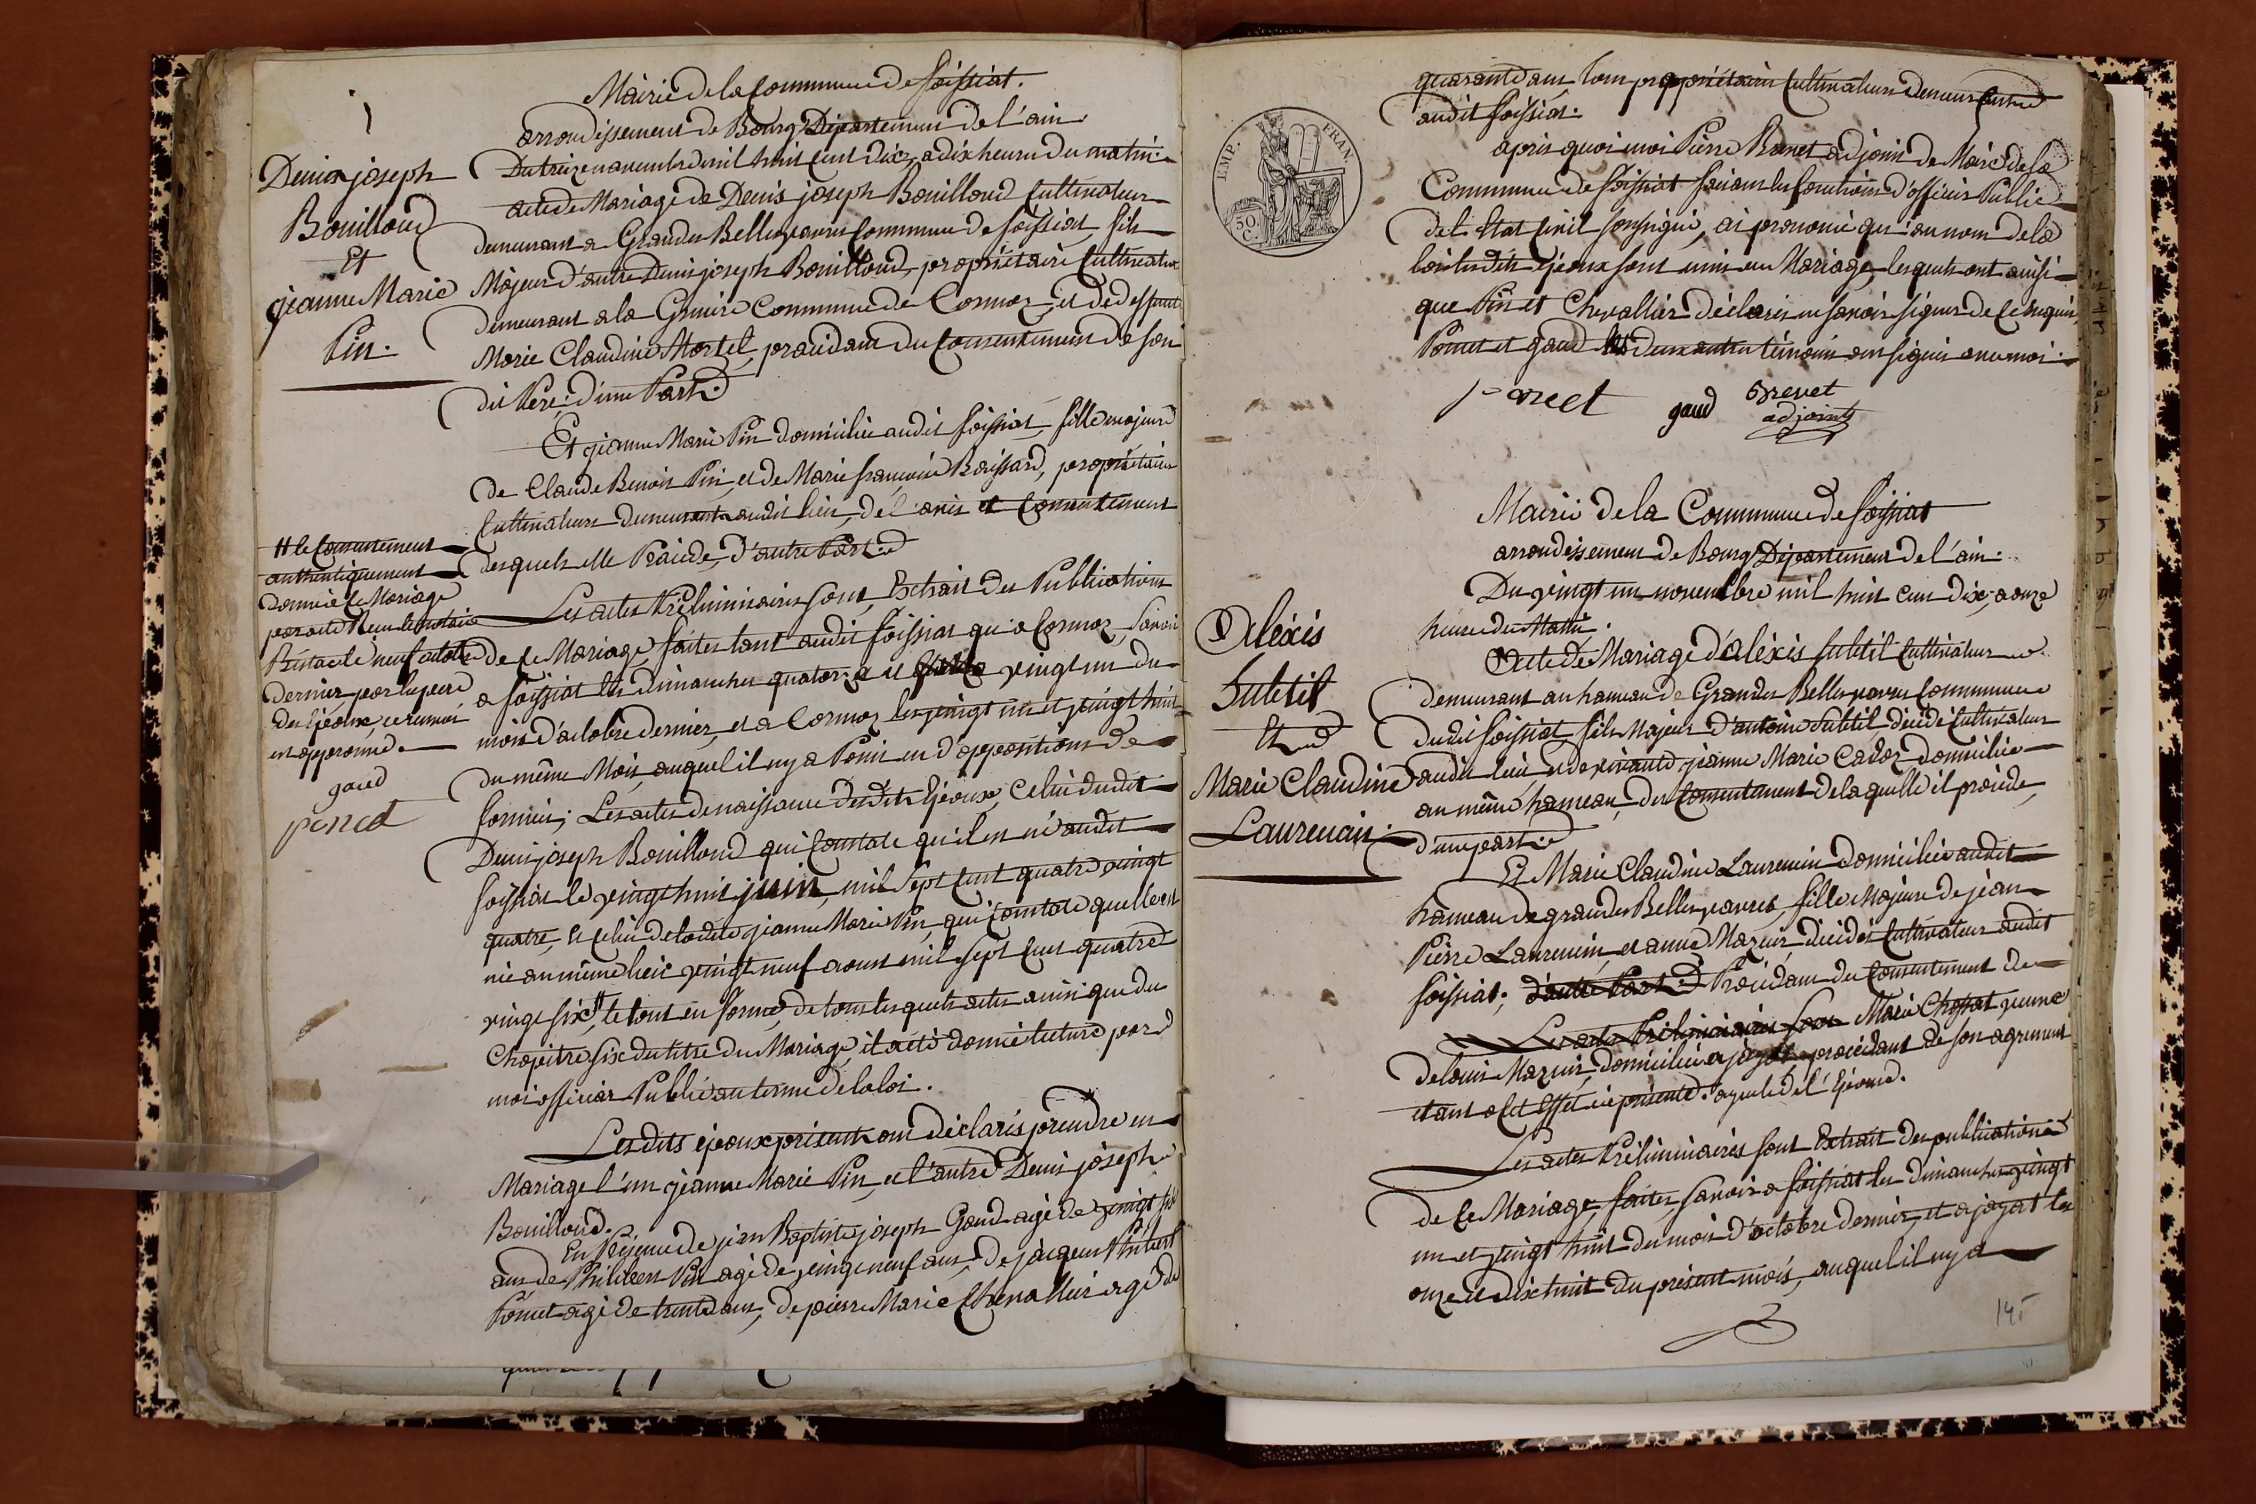 Mairie de la Commune de foissiat.
arrondissement de Bourg Département de l'ain
Denis joseph
Bouilloud
Et
jeanne Marie
Pin.
Du treize novembre mil huit cent dix, a dix heures du matin
acte de Mariage de Denis joseph Bouilloud Cultivateur
demeurant a Grandes Bellesvavres Commune de foissiat, fils
Majeur d'autre Denis joseph Bouilloud, propriétaire Cultivateur
demeurant a la Commune de Cormoz, et de deffunte
Marie Claudine Mortel, procédant du Consentement de son
dit Pere: D'une Part
Et jeanne Marie Pin domiciliée audit foissiat, fille majeure
de Claude Benoit Pin, et de Marie françoise Boissard, propriétaires
Cultivateurs demeurants audit lieu, de l'avis et Consentement
desquels elle Procède, d'autre Part
Les actes Préliminaires sont, Extrait des Publications
de ce Mariage faites tant audit foissiat qu'a Cormoz, savoir
a foissiat les dimanches quatorze et vingt un du
mois d'octobre dernier, et a Cormoz les vingt un et vingt huit
du même Mois, auquel il ny a Point eu d'oppositions de
formées; Les actes de naissance desdits Epoux, Celui dudit
Denis joseph Bouilloud qui Constate qu'il est né audit
foissiat le vingt huit juin, mil sept cent quatre vingt
quatre, et Celui de ladite jeanne Marie Pin, qui Constate quelle est
née au même lieu vingt neuf aoust mil sept cent quatre
vingt six, # le tout en forme, de tous lesquels actes ainsi que du
Chapitre six du titre du Mariage, il a été donné lecture par
moi officier Public au terme de la loi.
# le Consentement
authentiquement
donné a ce Mariage
par acte Reçu notaire
le neuf octobre
dernier, par le pere
de l'Epoux, ce renvoi
est approuvé
gaud
ponet
Lesdits époux présents ont déclarés prendre en
Mariage l'un jeanne Marie Pin, et l'autre Denis joseph
Bouilloud.
En Présence de jean Baptiste joseph Gaud agé de vingt
ans de Philibert Pin agé de vingt neuf ans, de jacques Philibert
Ponet agé de trente ans, de pierre Marie Chevallier agé de
IMP. FRAN.
50 C.
quarante ans, tous propriétaires Cultivateurs demeurants
audit foissiat.
après quoi moi Pierre Brevet adjoint de Maire de la
Commune de foissiat faisant les fonctions d'officier Public
de l'Etat Civil soussigné, ai prononcé qu'au nom de la
loi lesdits époux sont unis en Mariage, lesquels ont ainsi
que Pin et Chevallier déclarés ne savoir signer de ce requis,
Ponet et gaud les deux autres témoins ont signés avec moi.
ponet gaud Brevet
adjoint
Mairie de la Commune de foissiat
arrondissement de Bourg Département de l'ain.
Du vingt un novembre mil huit cent dix, a onze
heures du Matin.
Alexis
Subtil
Et
Marie Claudine
Laurencin.
Acte de Mariage d'alexis Subtil Cultivateur
demeurant au hameau de Grandes Bellesvavres Commune
dudit foissiat, fils Majeur d'antoine Subtil décédé Cultivateur
audit lieu, et de vivante jeanne Marie Cadoz domiciliée
au même hameau, du Consentement de laquelle il procède,
d'une part
Et Marie Claudine Laurencin domiciliée audit
hameau de grandes Bellesvavres, fille Majeure de jean
Pierre Laurencin, et anne Mazuir décédés Cultivateurs audit
foissiat; d'autre Part Procédant du Consentement de
Les actes Préliminaires sont Marie Chossat veuve
de louis Mazuir, domiciliée a jayat procédant de son agrement
étant a cet effet ici présente. ayeule de l'Epouse.
Les actes Préliminaires sont Extrait des publications
de ce Mariage, faites, savoir a foissiat les dimanches vingt
un et vingt huit du mois d'octobre dernier, et a jayat les
onze et dix huit du présent mois, auquel il ny a
145